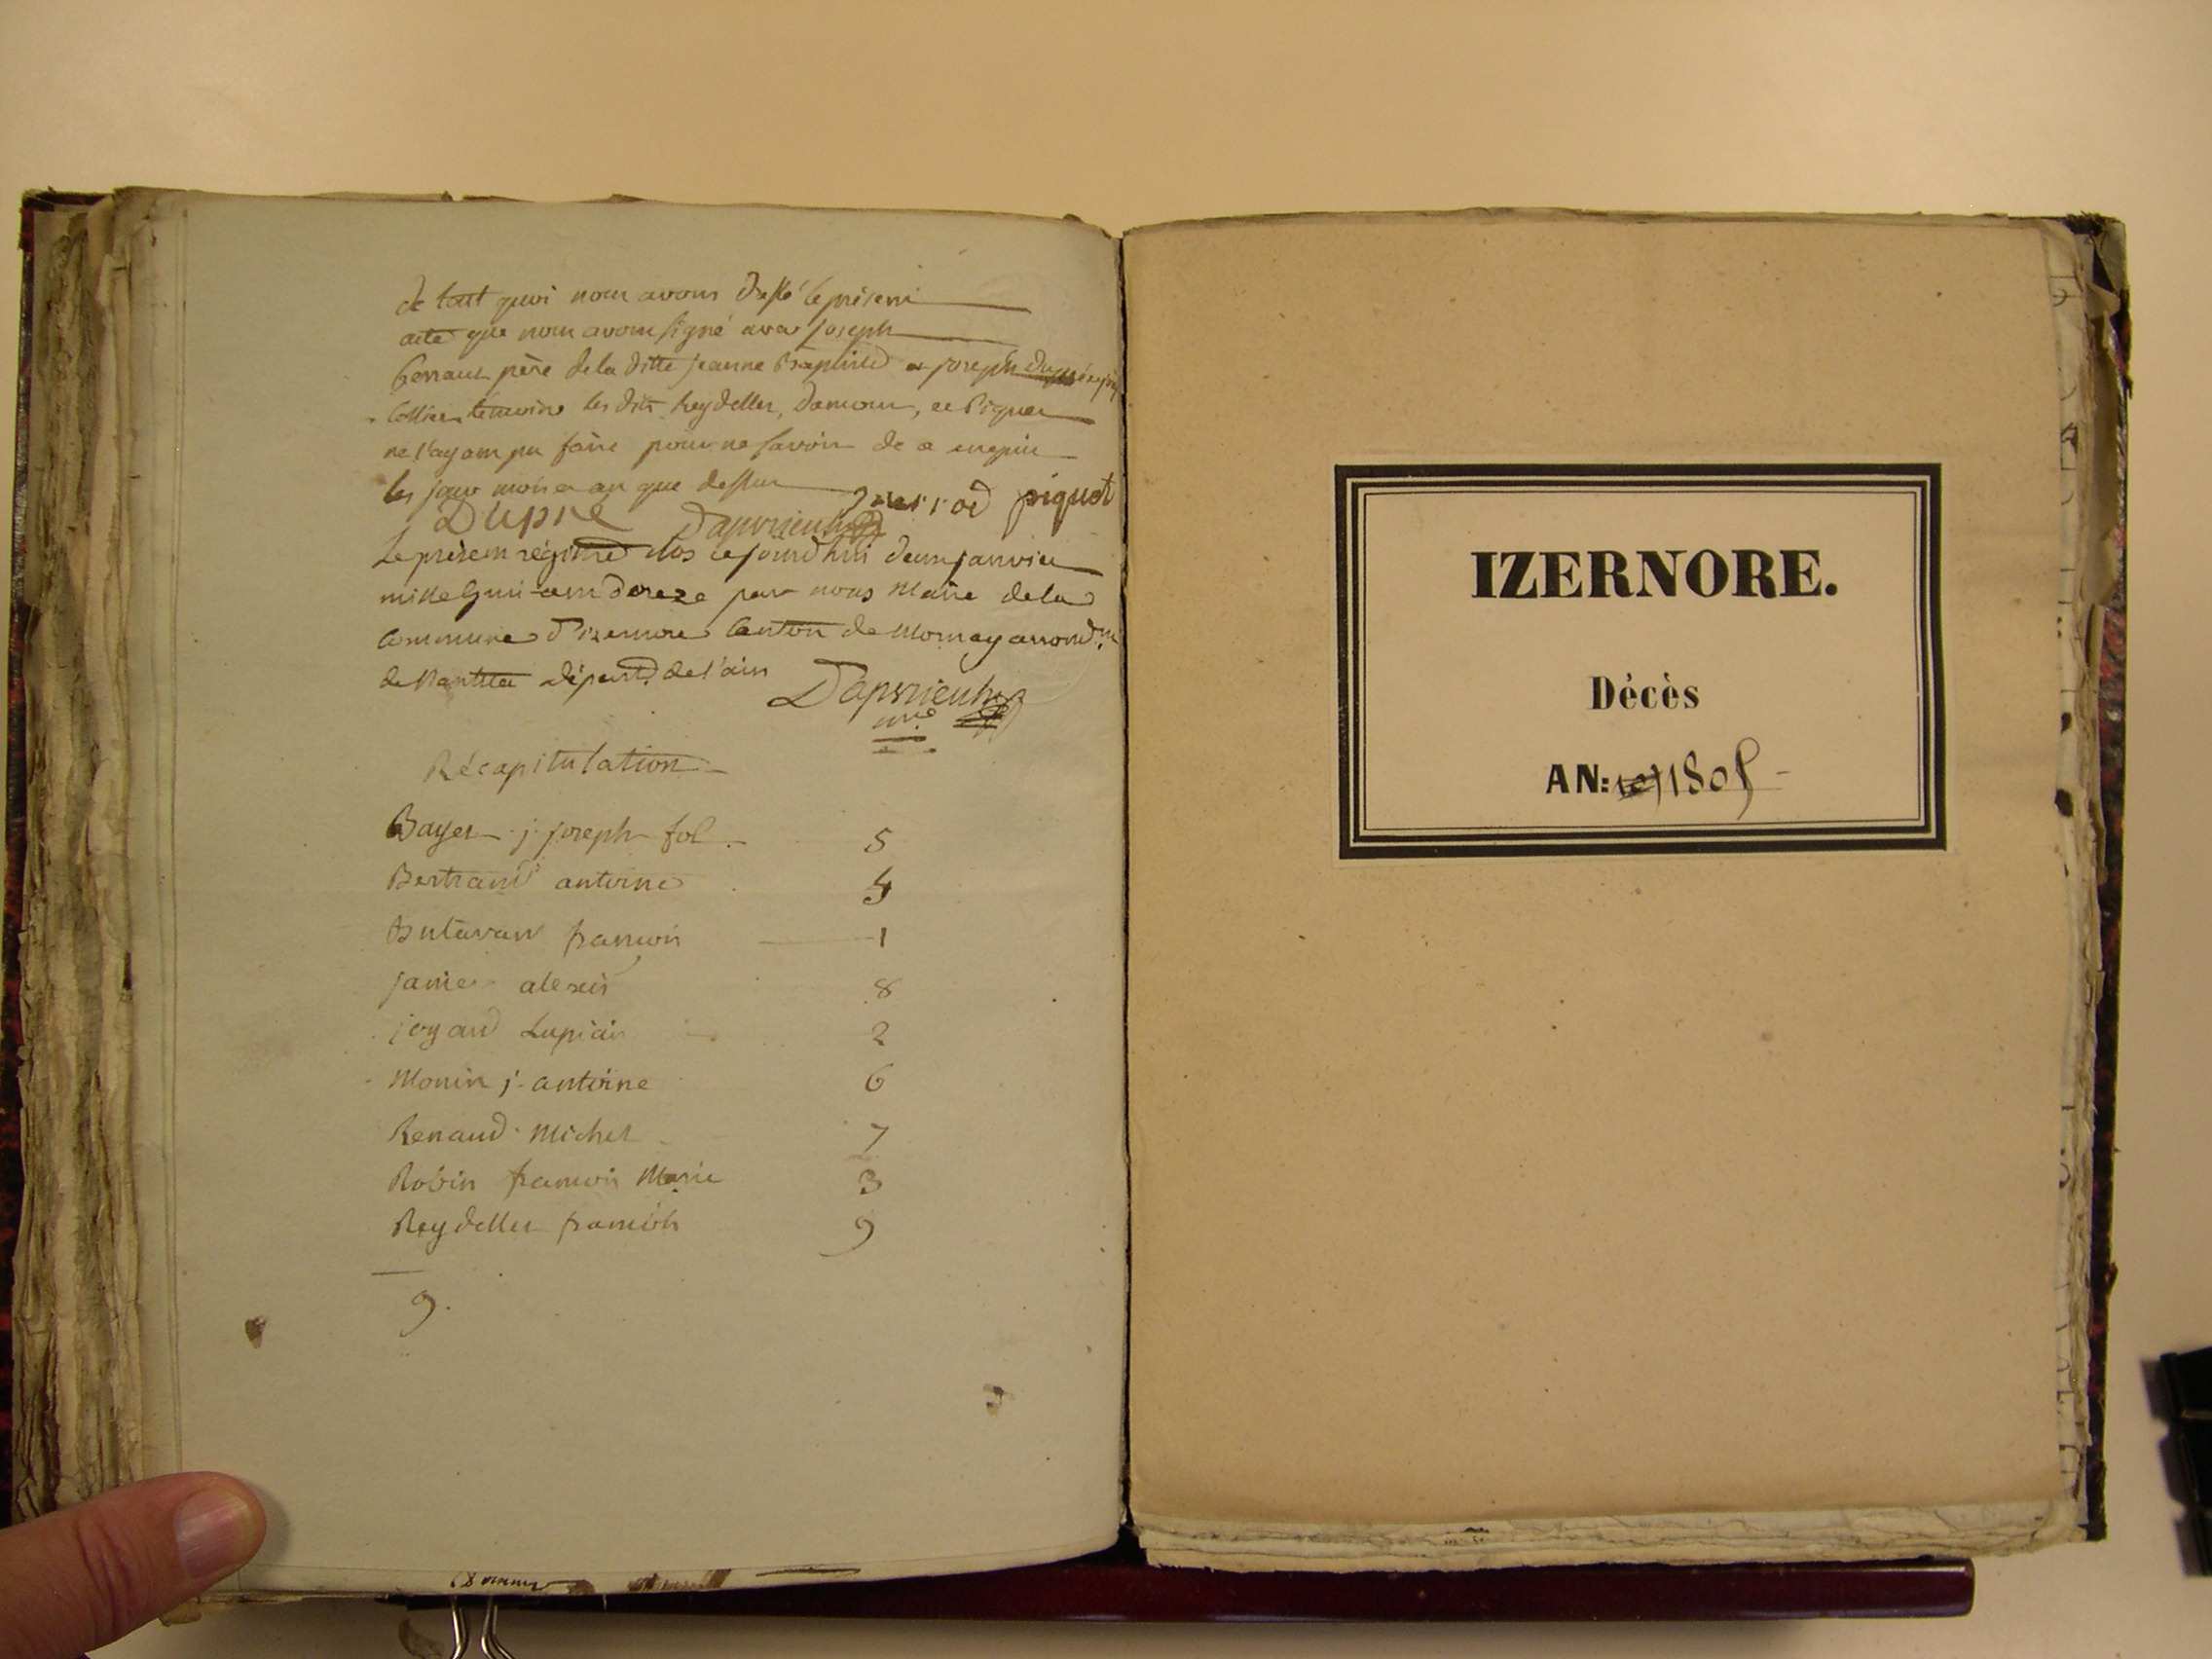 de tout quoi nous avons dressé le présent
acte que nous avons signé avec joseph
père de la ditte jeanne Baptiste et joseph
témoins les dits Reydellet, damour, et Piquet
ne l'ayant pu faire pour ne savoir de ce enquis
les jour mois et an que dessus
piquet
Dupré
Le présent régistre clos cejourd'hui deux janvier
mille huit cent doreze par nous Maire de la
commune d'izernore Canton de Mornay arrond.nt
de Nantua départ.t de l'ain
Récapitulation
Bayet j. joseph fol. 5
Bertrand antoine 4
Butavan francois 1
Jamet alexis 8
joyard Lupicin 2
Monin j. antoine 6
Renaud Michel 7
Robin francois Marie 3
Reydellet francois 9
9.
IZERNORE.
Décès
AN: 1808